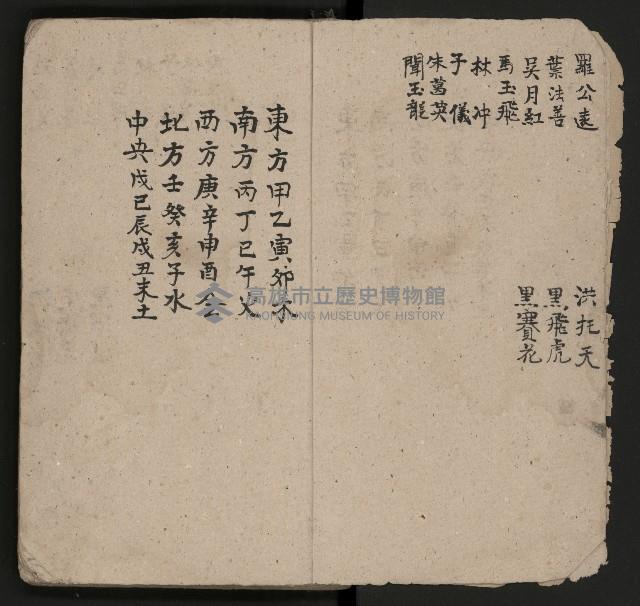 羅公遠
葉法善
吴月紅
馬玉飛
林冲
子儀
朱葛英
聞玉龍
洪托天
黑飛虎
黑賽花
東方甲乙寅卯木
南方丙丁巳午火
西方庚辛申酉金
北方壬癸亥子水
中央戊己辰戌丑未土
高雄市立歷史博物館
KAOHSIUNG MUSEUM OF HISTORY